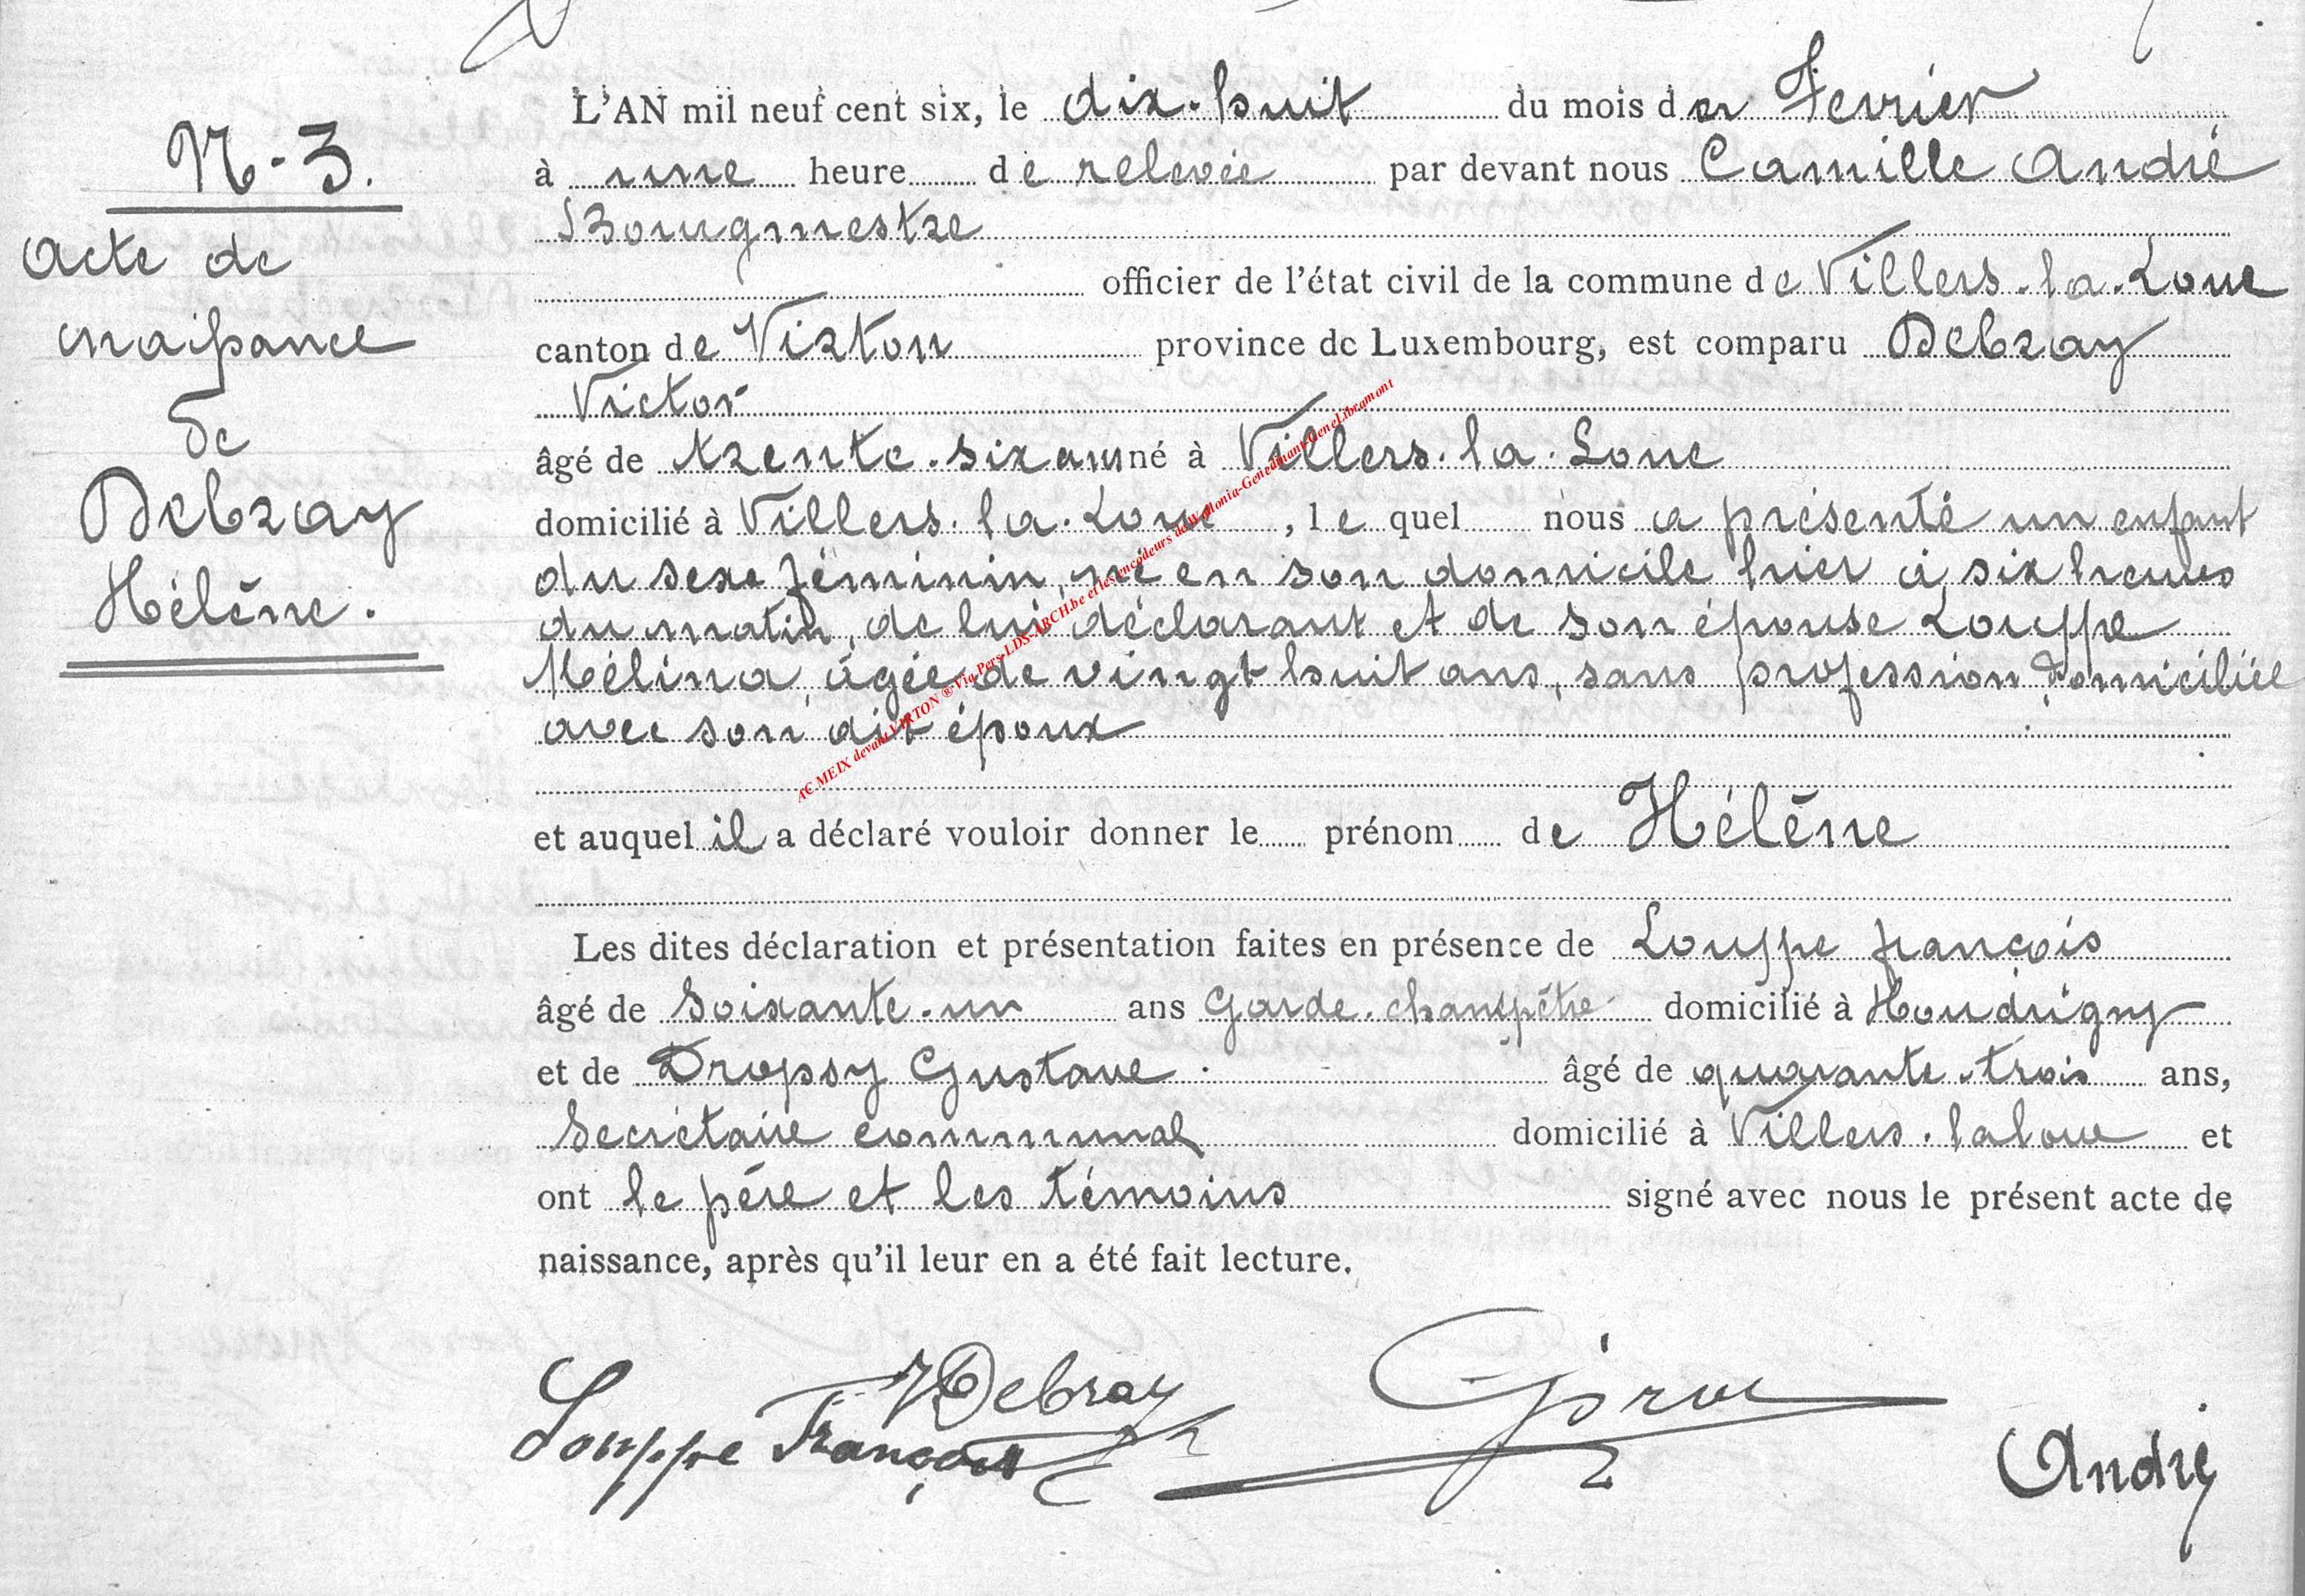 N-3.
Acte de
naissance
de
Debray
Hélène.
L'AN mil neuf cent six, le dix-huit du mois de Fevrier
à une heure de relevée par devant nous Camille André
Bourgmestre
officier de l'état civil de la commune de Villers-la-Loue
canton de Virton province de Luxembourg, est comparu Debray
Victor
âgé de trente-six ans né à Villers-la-Loue
domicilié à Villers-la-Loue, lequel nous a présenté un enfant
du sexe féminin, né en son domicile hier à six heures
du matin, de lui déclarant et de son épouse Louppe
Mélina, âgée de vingt huit ans, sans profession domiciliée
avec son dit époux
et auquel il a déclaré vouloir donner le prénom de Hélène
Les dites déclaration et présentation faites en présence de Louppe françois
âgé de Soixante-un ans Garde-champêtre domicilié à Houdrigny
et de Dropsy Gustave âgé de quarante-trois ans,
Secrétaire communal domicilié à Villers-laloue et
ont le père et les témoins signé avec nous le présent acte de
naissance, après qu'il leur en a été fait lecture.
VDebray
Louppe François
André
AC MEIX devant VIRTON ® Via Pers-LDS-ARCH.be et les encodeurs de Wallonia-Genedinant-GeneLibramont